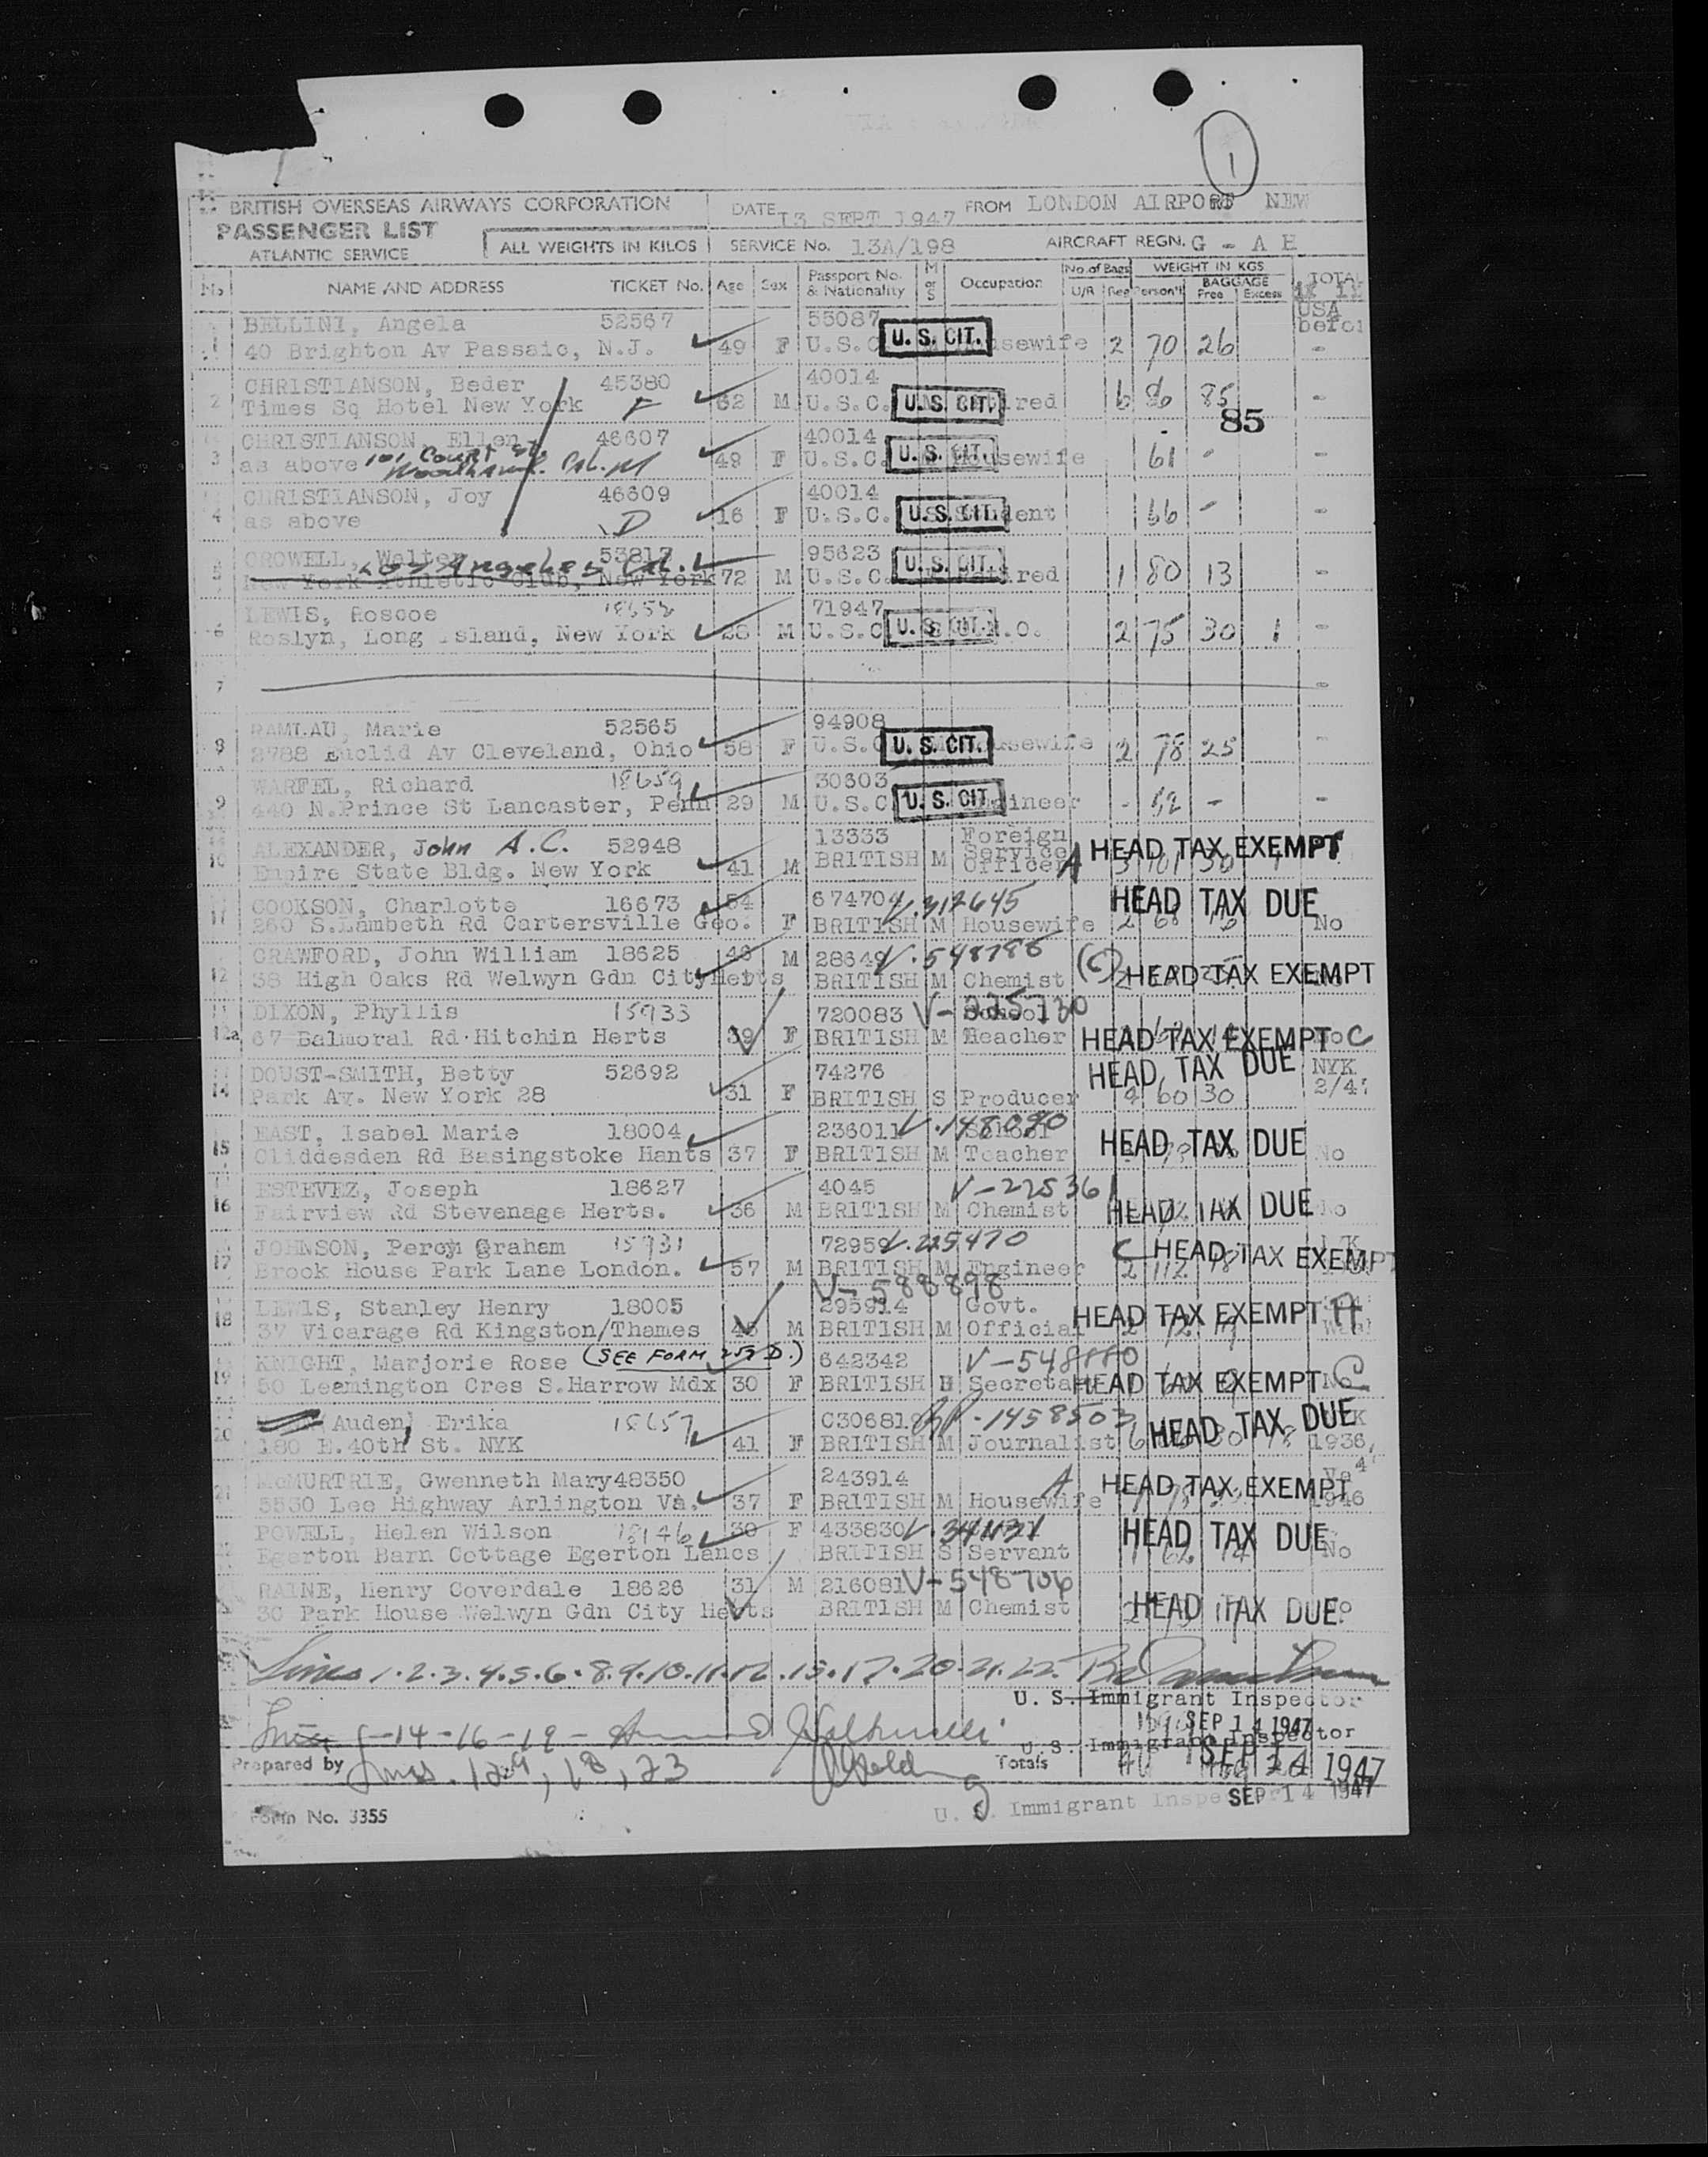 1
BRITISH OVERSEAS AIRWAYS CORPORATION DATE 13 SEPT 1947 FROM LONDON AIRPORT NEW
PASSENGER LIST
ATLANTIC SERVICE ALL WEIGHTS IN KILOS SERVICE No. 13A/198 AIRCRAFT REGN. G - A H
No. NAME AND ADDRESS TICKET No. Age Sex Passport No. & Nationality M or S Occupation No. of Bags U/R Reg WEIGHT IN KGS Person'l BAGGAGE Free Excess TOTAL
USA
BELLINI, Angela 52567 55087
1 40 Brighton Av Passaic, N.J. 49 F U.S.C. U. S. CIT. usewife 2 70 26 -
CHRISTIANSON, Beder 45380 40014
2 Times Sq Hotel New York F 62 M U.S.C. U. S. CIT. ired 6 86 85 -
85
CHRISTIANSON, Ellen 46607 40014
3 as above 101 Court St Cal. M 49 F U.S.C. U. S. CIT. Housewife 61 - -
CHRISTIANSON, Joy 46609 40014
4 as above D 16 F U.S.C. U. S. CIT. dent 66 - -
CROWELL, Walter 53817 95623
5 New York Athletic Club, New York Los Angeles Cal. 72 M U.S.C. U. S. CIT. ired 1 80 13 -
LEWIS, Roscoe 18658 71947
6 Roslyn, Long Island, New York 28 M U.S.C. U. S. CIT. .O. 2 75 30 1 -
7 -
RAMLAU, Marie 52565 94908
8 2788 Euclid Av Cleveland, Ohio 58 F U.S.C. U. S. CIT. usewife 2 78 25 -
WARFEL, Richard 18659 30603
9 440 N.Prince St Lancaster, Penn 29 M U.S.C. U. S. CIT. gineer - - -
ALEXANDER, John A.C. 52948 13333 Foreign Service
10 Empire State Bldg. New York 41 M BRITISH M Officer A HEAD TAX EXEMPT 3 101 30 1
COOKSON, Charlotte 16673 54 674704 V.312645 HEAD TAX DUE
11 260 S.Lambeth Rd Cartersville Geo. F BRITISH M Housewife 2 No
CRAWFORD, John William 18625 46 M 28649 V.548786
12 38 High Oaks Rd Welwyn Gdn City Herts BRITISH M Chemist (C) HEAD TAX EXEMPT
DIXON, Phyllis 15933 720083 V-225730 School
12a 67 Balmoral Rd Hitchin Herts 39 F BRITISH M Teacher HEAD TAX EXEMPT No C
DOUST-SMITH, Betty 52692 74276 HEAD TAX DUE NYK
14 Park Av. New York 28 31 F BRITISH S Producer 4 60 30 2/47
EAST, Isabel Marie 18004 236011 V.148090 School
15 Cliddesden Rd Basingstoke Hants 37 F BRITISH M Teacher HEAD TAX DUE No
ESTEVEZ, Joseph 18627 4045 V-225361
16 Fairview Rd Stevenage Herts. 36 M BRITISH M Chemist HEAD TAX DUE No
JOHNSON, Percy Graham 15931 72959 V.225470
17 Brook House Park Lane London. 57 M BRITISH M Engineer C HEAD TAX EXEMPT 2 112
V-588898
LEWIS, Stanley Henry 18005 295914 Govt.
18 37 Vicarage Rd Kingston/Thames M BRITISH M Official HEAD TAX EXEMPT A
KNIGHT, Marjorie Rose (SEE FORM 259 D.) 642342 V-548880
19 50 Leamington Cres S.Harrow Mdx 30 F BRITISH Secretary HEAD TAX EXEMPT No C
Auden, Erika 18657 C30681 RP-1458503 HEAD TAX DUE
20 180 E.40th St. NYK 41 F BRITISH M Journalist 6 1936,
McMURTRIE, Gwenneth Mary 48350 243914 A HEAD TAX EXEMPT
21 5530 Lee Highway Arlington Va. 37 F BRITISH M Housewife 1946
POWELL, Helen Wilson 18146 30 F 433830 HEAD TAX DUE
Egerton Barn Cottage Egerton Lancs BRITISH S Servant 1 62 14 No
RAINE, Henry Coverdale 18626 31 M 216081 V-548706
30 Park House Welwyn Gdn City Herts BRITISH M Chemist HEAD TAX DUE
Lines 1.2.3.4.5.6.8.9.10.11.12.15.17.20.21.22.
U. S. Immigrant Inspector
SEP 14 1947
Lines -14-16-19-
U. S. Immigrant Inspector
Prepared by Lines. 12a, 18, 23 Totals SEP 14 1947
U. S. Immigrant Inspector SEP 14 1947
Form No. 3355